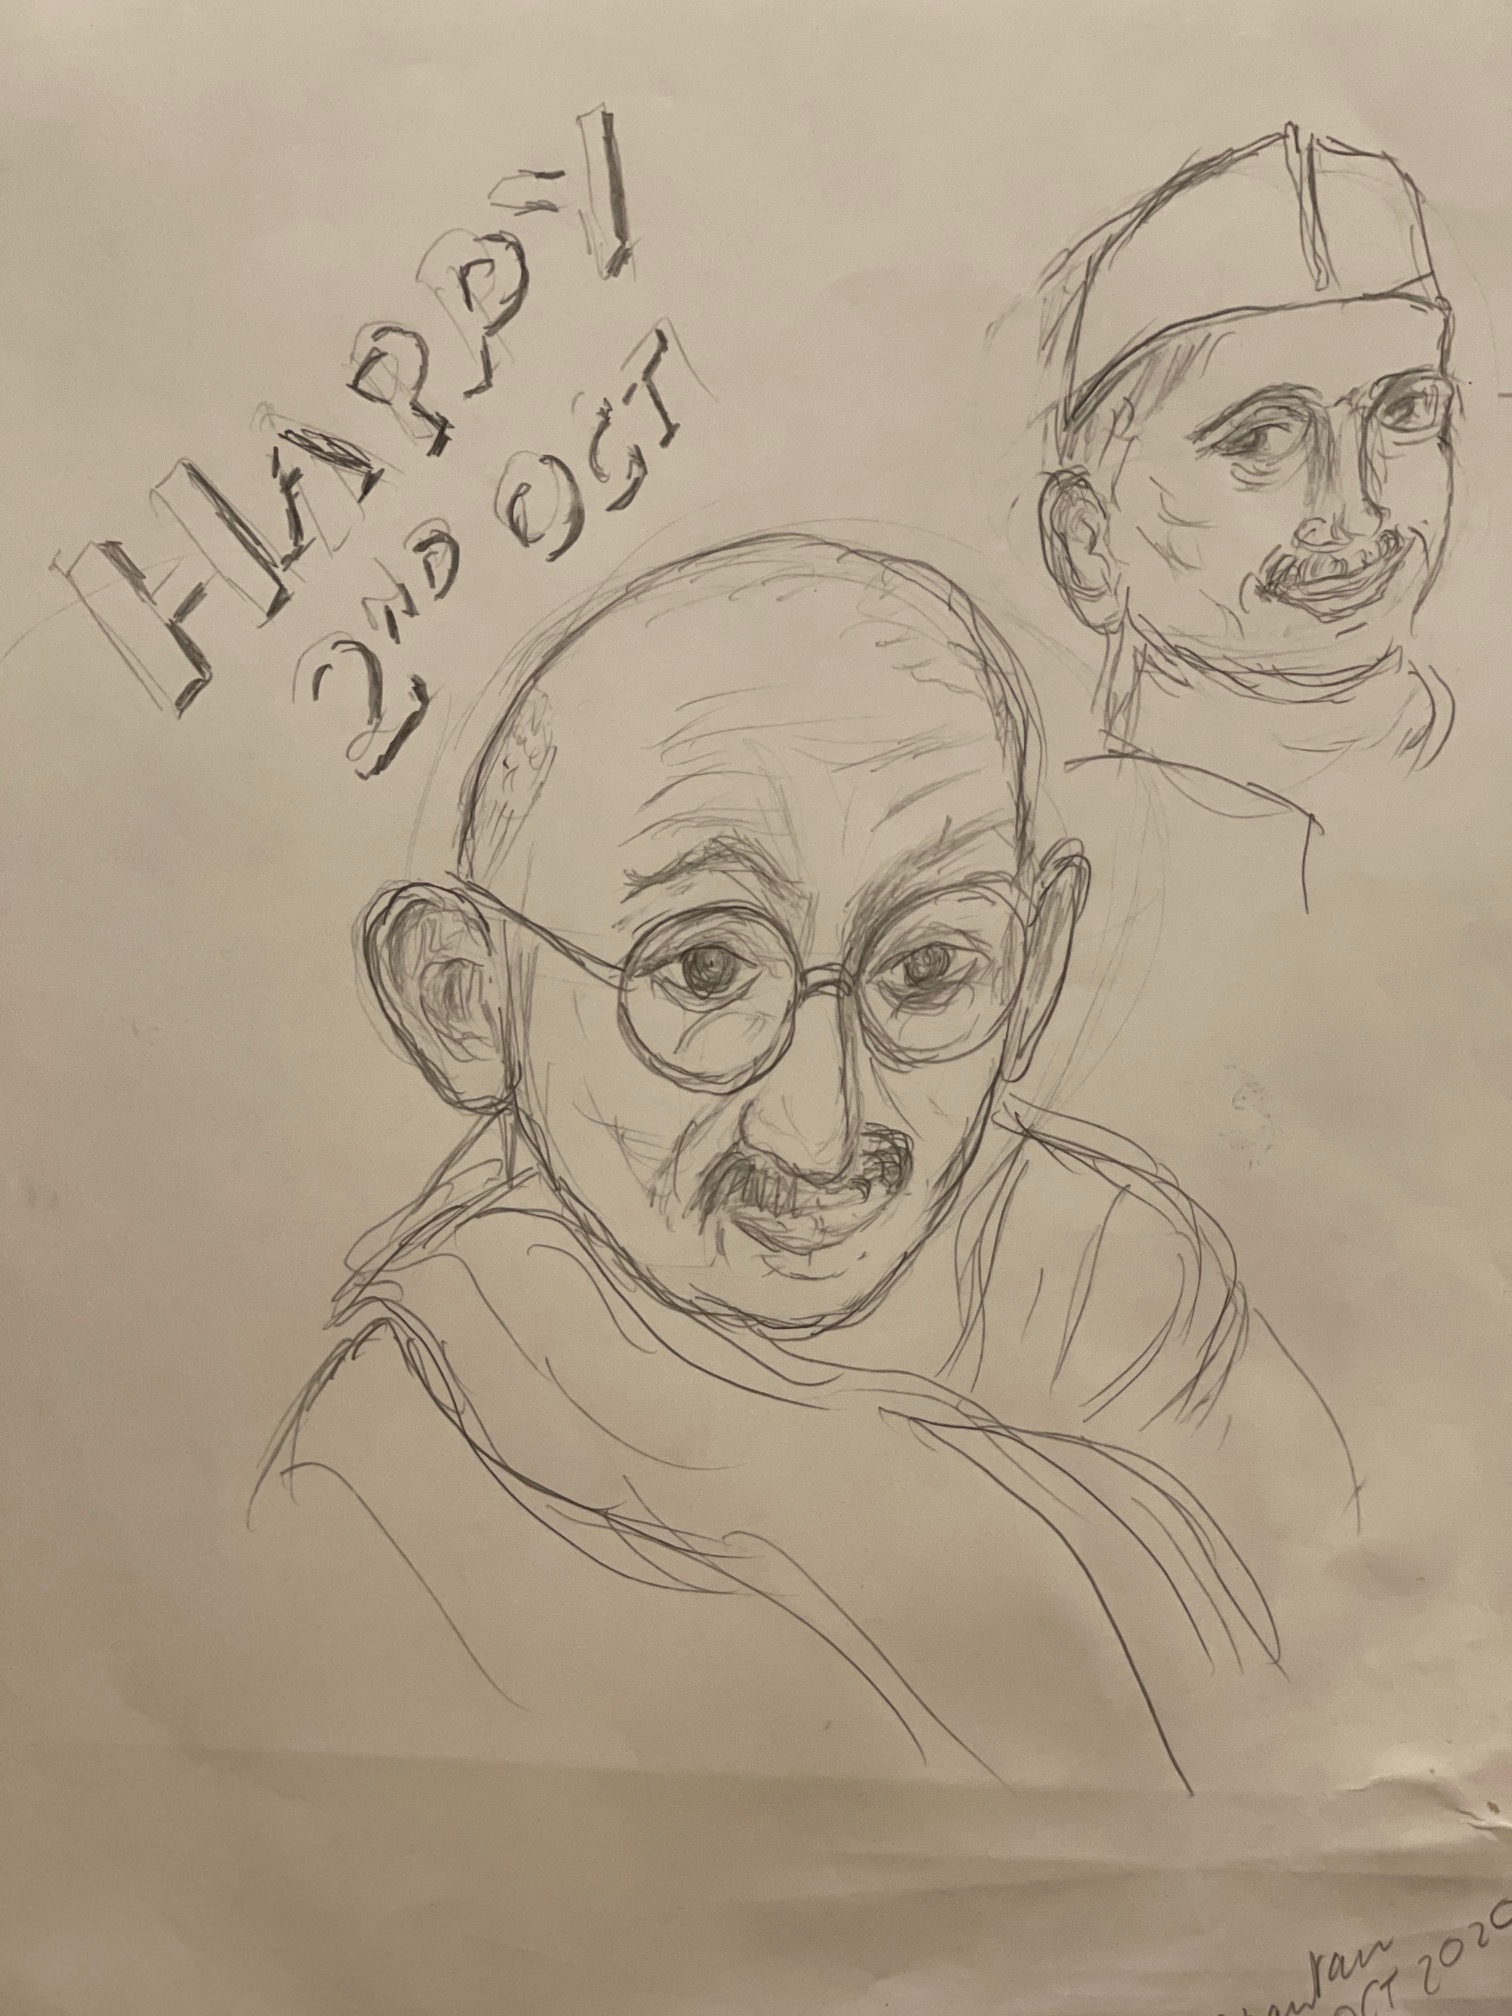 HAPPY
2ND OCT
OCT 2020